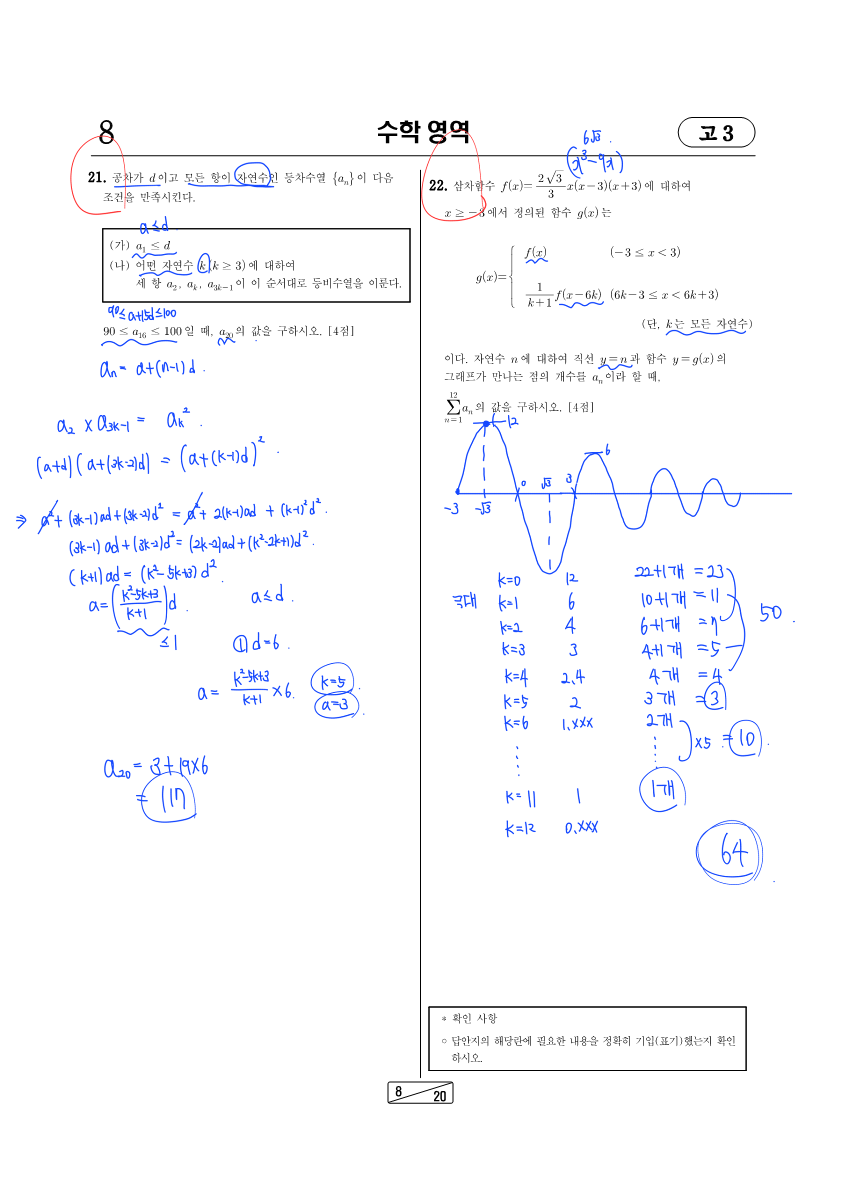 8
수학 영역
고 3
21. 공차가 d이고 모든 항이 자연수인 등차수열 {aₙ}이 다음
조건을 만족시킨다.
a≤d
(가) a₁ ≤ d
(나) 어떤 자연수 k(k ≥ 3)에 대하여
세 항 a₂, aₖ, a₃ₖ₋₁이 이 순서대로 등비수열을 이룬다.
90≤a+15d≤100
90 ≤ a₁₆ ≤ 100일 때, a₂₀의 값을 구하시오. [4점]
aₙ= a+(n-1)d.
a₂ × a₃ₖ₋₁ = aₖ².
(a+d)(a+(3k-2)d) = (a+(k-1)d)².
⇒ a²+(3k-1)ad+(3k-2)d² = a²+2(k-1)ad + (k-1)²d².
(3k-1)ad+(3k-2)d² = (2k-2)ad+(k²-2k+1)d².
(k+1)ad = (k²-5k+3)d².
a=(k²-5k+3/k+1)d. a≤d.
≤1 ① d=6.
a= k²-5k+3/k+1 ×6. k=5
a=3.
a₂₀= 3+19×6
= 117
6√3.
(x³-9x)
22. 삼차함수 f(x)= 2√3/3 x(x-3)(x+3)에 대하여
x ≥ -3에서 정의된 함수 g(x)는
g(x)= { f(x) (-3 ≤ x < 3)
1/k+1 f(x-6k) (6k-3 ≤ x < 6k+3)
(단, k는 모든 자연수)
이다. 자연수 n에 대하여 직선 y=n과 함수 y=g(x)의
그래프가 만나는 점의 개수를 aₙ이라 할 때,
12 ∑ n=1 aₙ의 값을 구하시오. [4점]
12
6
-3 -√3 0 √3 3
k=0 12 22+1개 =23
극대 k=1 6 10+1개 =11 50.
k=2 4 6+1개 =7
k=3 3 4+1개 =5
k=4 2.4 4개 =4
k=5 2 3개 =3
k=6 1.xxx 2개
×5 =10.
k=11 1 1개
k=12 0.xxx
64
* 확인 사항
○ 답안지의 해당란에 필요한 내용을 정확히 기입(표기)했는지 확인
하시오.
8
20